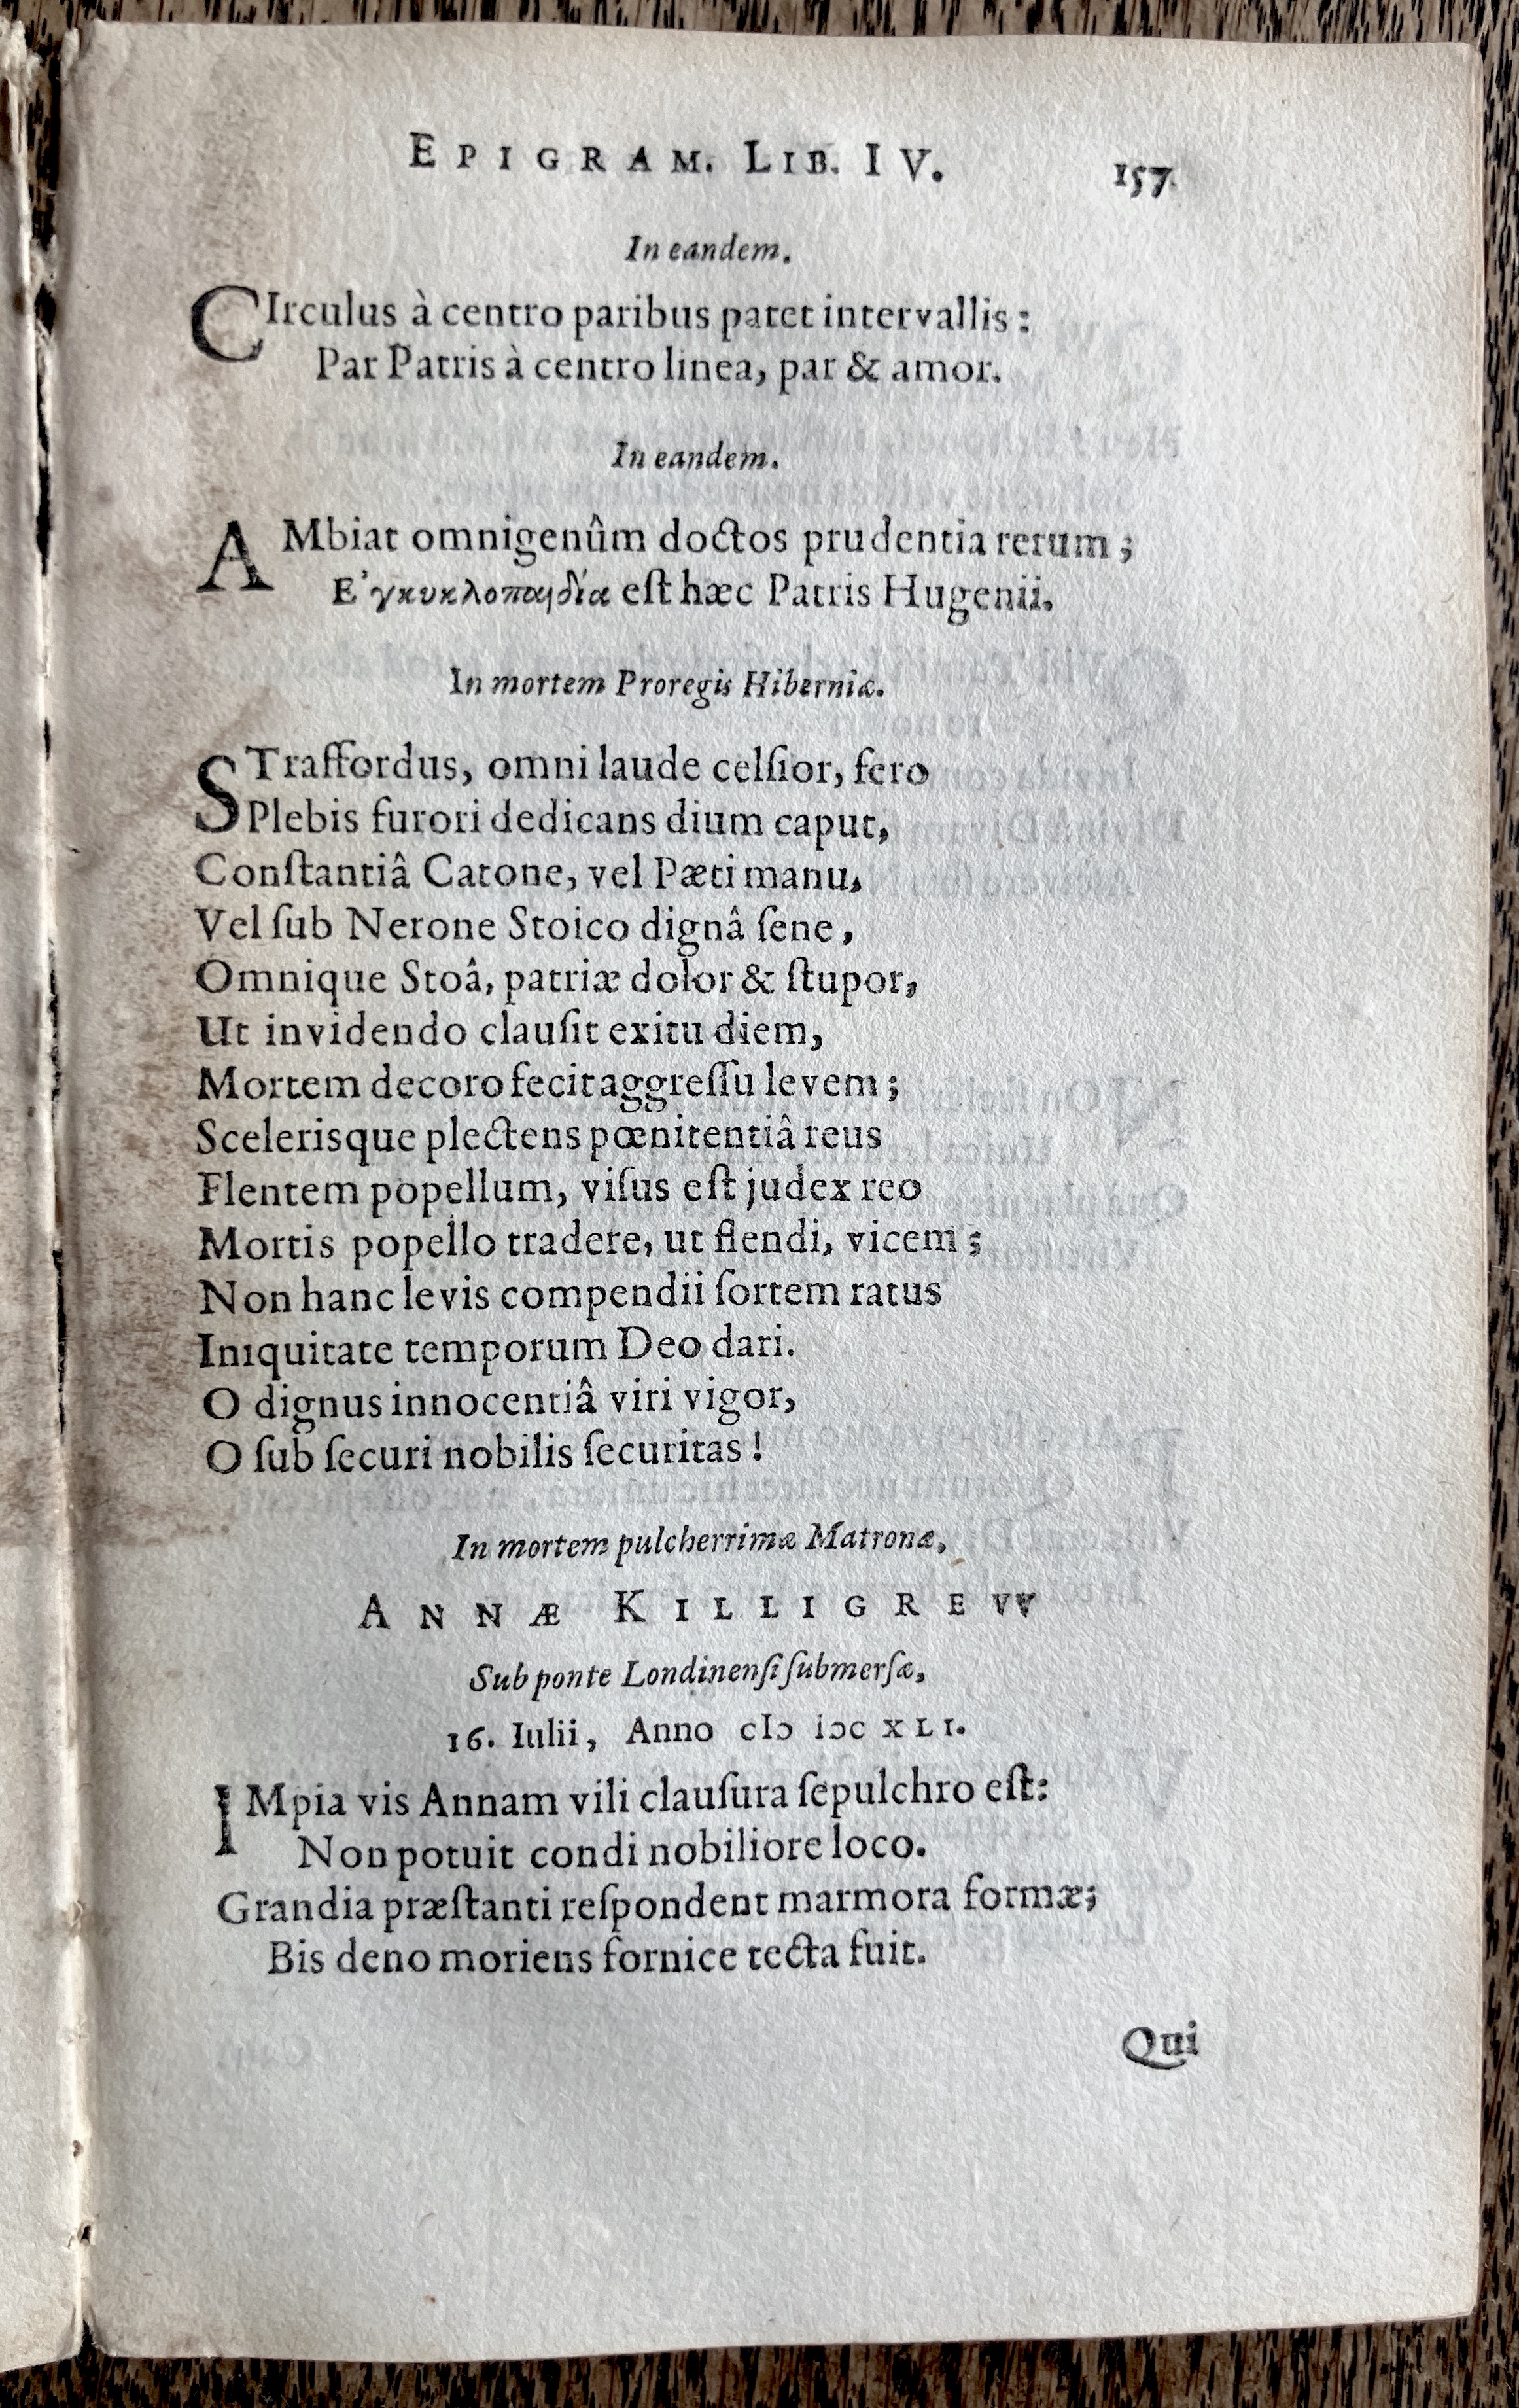 EPIGRAM. LIB. IV. 157.
In eandem.
CIrculus à centro paribus patet intervallis:
Par Patris à centro linea, par & amor.
In eandem.
AMbiat omnigenûm doctos prudentia rerum;
Ἐγκυκλοπαιδία eſt hæc Patris Hugenii.
In mortem Proregis Hiberniæ.
STraffordus, omni laude celſior, fero
Plebis furori dedicans dium caput,
Conſtantiâ Catone, vel Pæti manu,
Vel ſub Nerone Stoico dignâ ſene,
Omnique Stoâ, patriæ dolor & ſtupor,
Ut invidendo clauſit exitu diem,
Mortem decoro fecit aggreſſu levem;
Scelerisque plectens pœnitentiâ reus
Flentem popellum, viſus eſt judex reo
Mortis popello tradere, ut flendi, vicem;
Non hanc levis compendii ſortem ratus
Iniquitate temporum Deo dari.
O dignus innocentiâ viri vigor,
O ſub ſecuri nobilis ſecuritas!
In mortem pulcherrimæ Matronæ,
ANNÆ KILLIGREW
Sub ponte Londinenſi ſubmerſæ,
16. Iulii, Anno cIↄ iↄc XLI.
IMpia vis Annam vili clauſura ſepulchro eſt:
Non potuit condi nobiliore loco.
Grandia præſtanti reſpondent marmora formæ;
Bis deno moriens fornice tecta fuit.
Qui